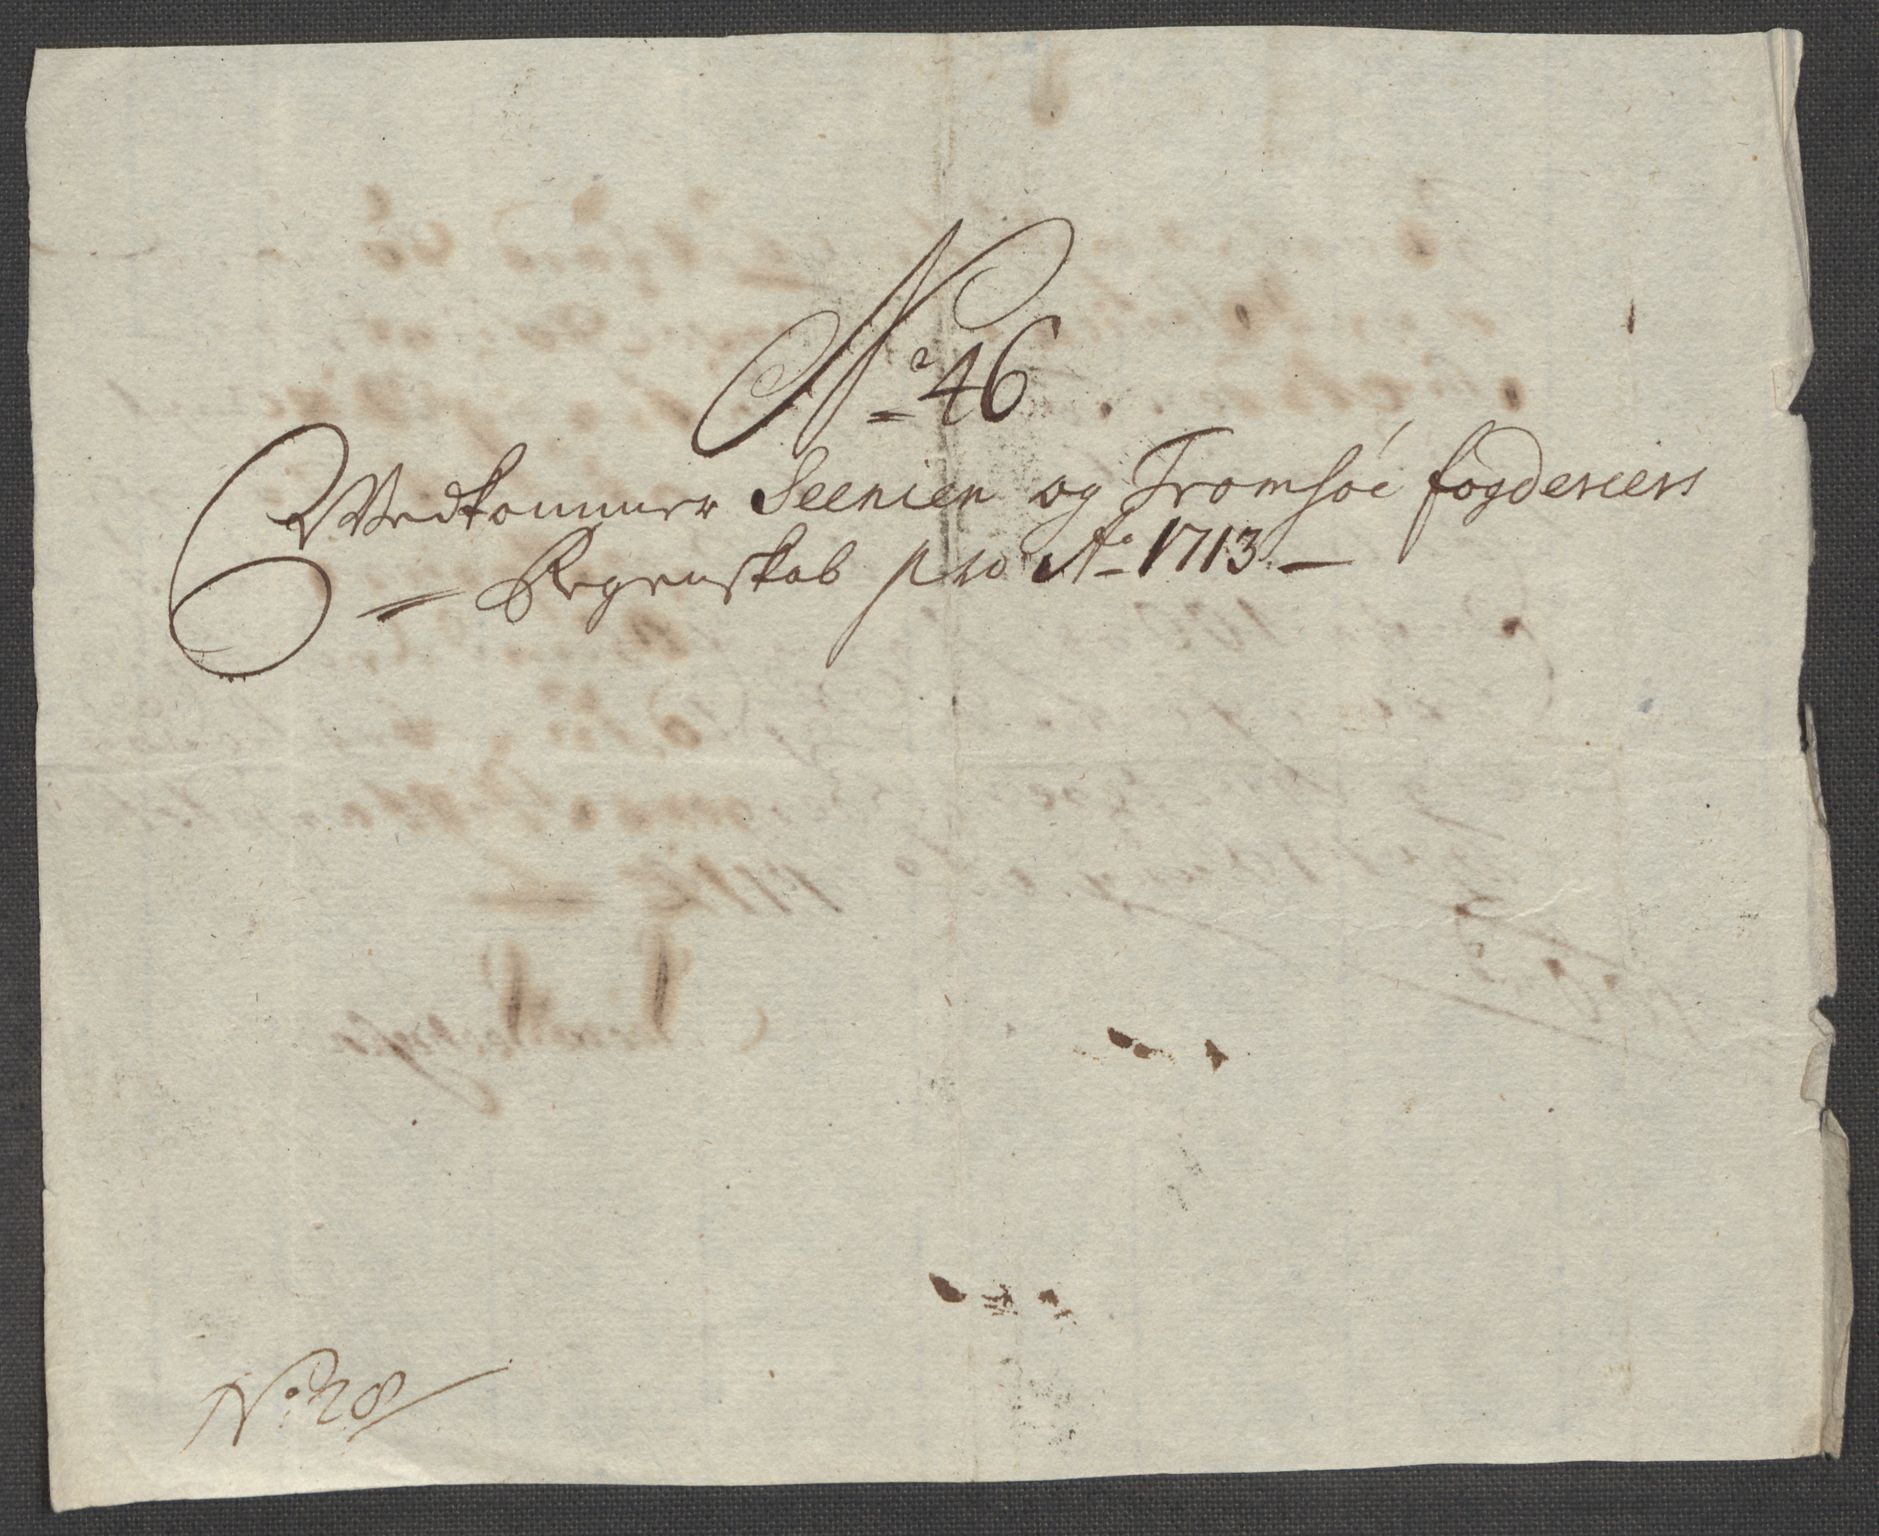 No 46
Vedkommer Seenien og Tromsöe fogderiers
Regenskab pro Ao 1713
No 28